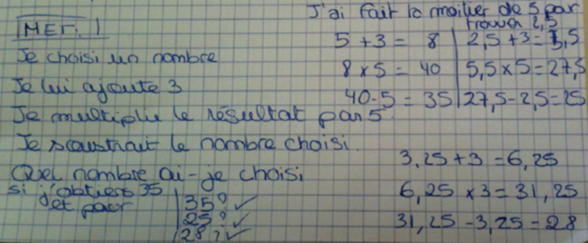 MET. 1
Je choisi un nombre
Je lui ajoute 3
Je multiplie le résultat par 5.
Je soustrait le nombre choisi.
Quel nombre ai-je choisi
si j'obtiens 35
et pour
35? ✓
25? ✓
28? ✓
J'ai fait la moitier de 5 par
trouver 2,5
5 + 3 = 8
8 x 5 = 40
40 - 5 = 35
2,5 + 3 = 5,5
5,5 x 5 = 27,5
27,5 - 2,5 = 25
3,25 + 3 = 6,25
6,25 x 3 = 31,25
31,25 - 3,25 = 28